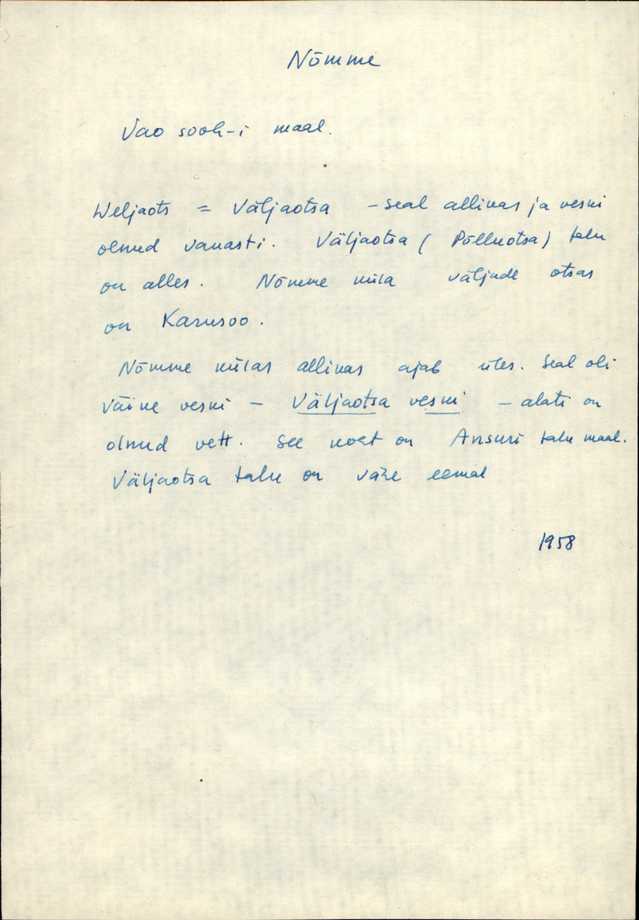 Nõmme
Vao sooh-i maal.
Weljaots = Väljaotsa - seal allikas ja veski
olnud vanasti. Väljaotsa (Põlluotsa) talu
on alles. Nõmme küla väljade otsas
on Karusoo.
Nõmme külas allikas ajab üles. Seal oli
väike veski - Väljaotsa veski - alati on
olnud vett. See koht on Ansuri talu maal.
Väljaotsa talu on vähe eemal
1958